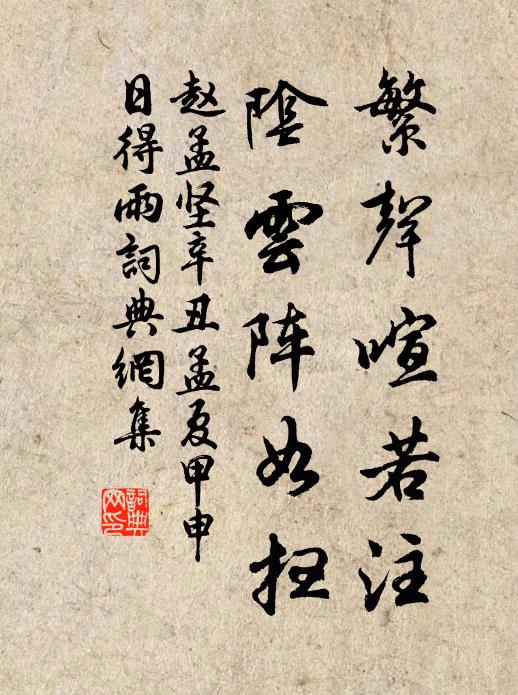 繁聲喧若注
陰雲阵如狂
赵孟坚辛丑孟夏甲申
日得雨詞典網集
詞典
网印